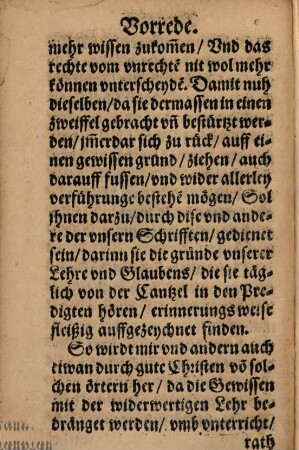 Vorrede.
mehr wissen zukom̃en / Vnd das
rechte vom vnrechtẽ nit wol mehr
können vnterscheydẽ. Damit nuh
dieselben / da sie dermassen in einen
zweiffel gebracht vñ bestürtzt wer-
den / jm̃erdar sich zu rück / auff ei-
nen gewissen gründ / ziehen / auch
darauff fussen / vnd wider allerley
verführunge bestehẽ mögen / Sol
jhnen darzu / durch dise vnd ande-
re der vnsern Schrifften / gedienet
sein / darinn sie die gründe vnserer
Lehre vnd Glaubens / die sie täg-
lich von der Cantzel in den Pre-
digten hören / erinnerungs weise
fleißig auffgezeychnet finden.
So wirdt mir vnd andern auch
etwan durch gute Christen võ sol-
chen örtern her / da die Gewissen
mit der widerwertigen Lehr be-
dränget werden / vmb vnterricht /
rath